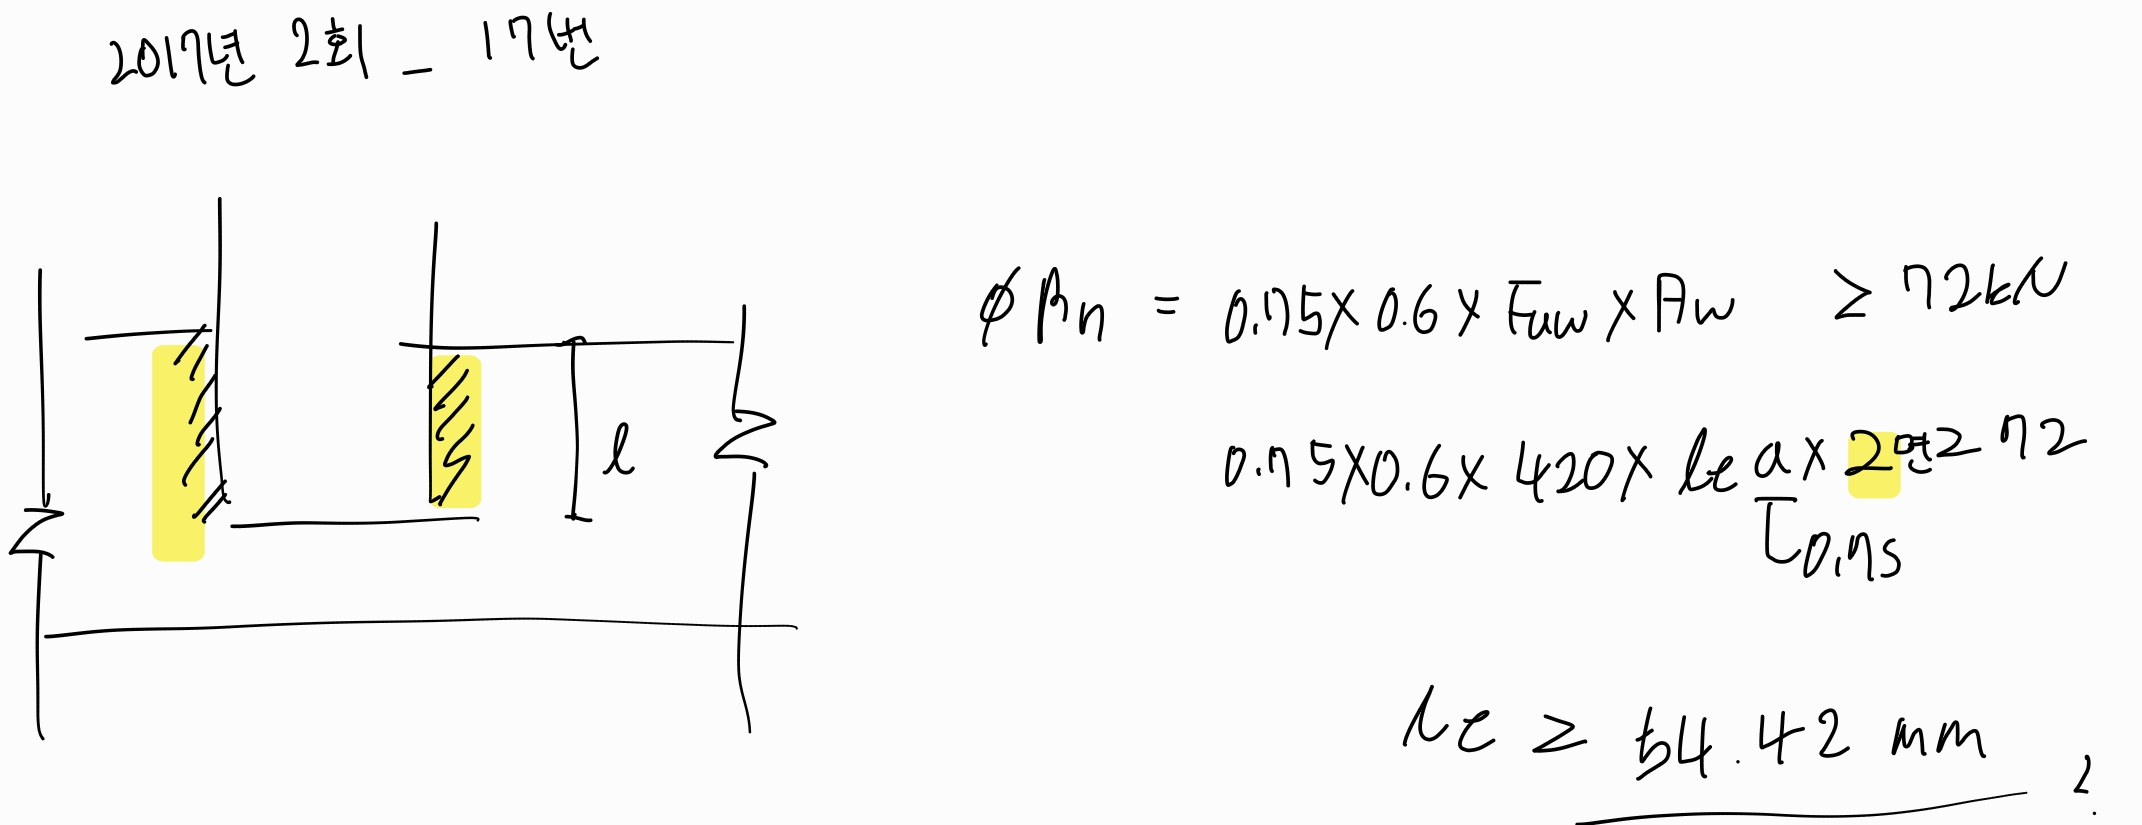 2017년 2회 _ 17번
φRn = 0.75×0.6×Fuw×Aw ≥ 72kN
l
0.75×0.6×420×le a×2면≥72
0.7s
le ≥ 54.42 mm ?